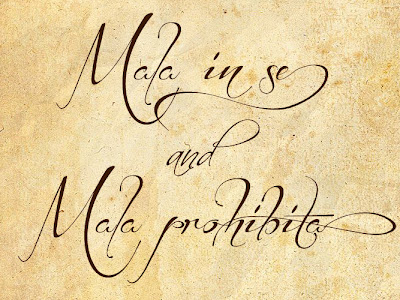 Mala in se
and
Mala prohibita